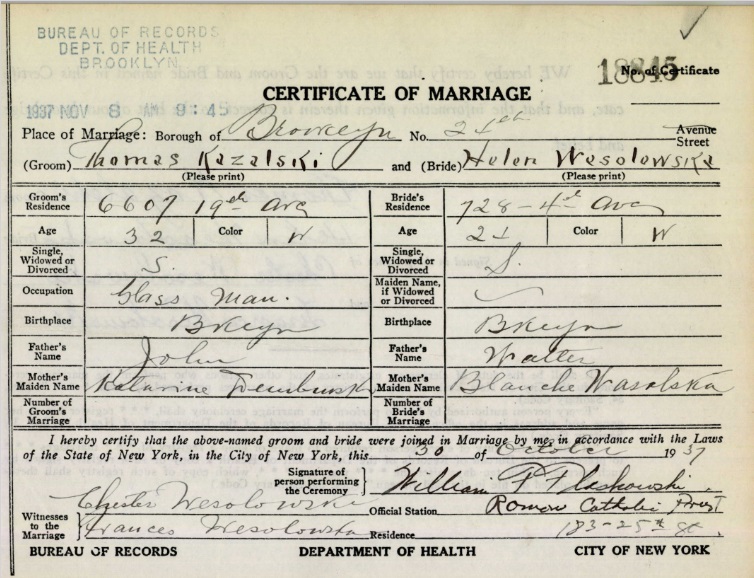 BUREAU OF RECORDS
DEPT. OF HEALTH
BROOKLYN
18845
No. of Certificate
CERTIFICATE OF MARRIAGE
1937 NOV 8 AM 9:45
Place of Marriage: Borough of Brooklyn No. 24th Avenue Street
(Groom) Thomas Kazalski and (Bride) Helen Wesolowska
(Please print) (Please print)
Groom's Residence 6607 19th Ave Bride's Residence 728-4th Ave
Age 32 Color W Age 21 Color W
Single, Widowed or Divorced S Single, Widowed or Divorced S.
Occupation Glass Man. Maiden Name, if Widowed or Divorced
Birthplace Bklyn Birthplace Bklyn
Father's Name John Father's Name Walter
Mother's Maiden Name Katarine Mother's Maiden Name Blanche Wasolska
Number of Groom's Marriage Number of Bride's Marriage
I hereby certify that the above-named groom and bride were joined in Marriage by me, in accordance with the Laws
of the State of New York, in the City of New York, this 30 of October 1937
Signature of person performing the Ceremony William F. Plaskowski
Witnesses to the Marriage Chester Wesolowski Official Station Roman Catholic Priest
Frances Wesolowska Residence 183-25th St.
BUREAU OF RECORDS DEPARTMENT OF HEALTH CITY OF NEW YORK